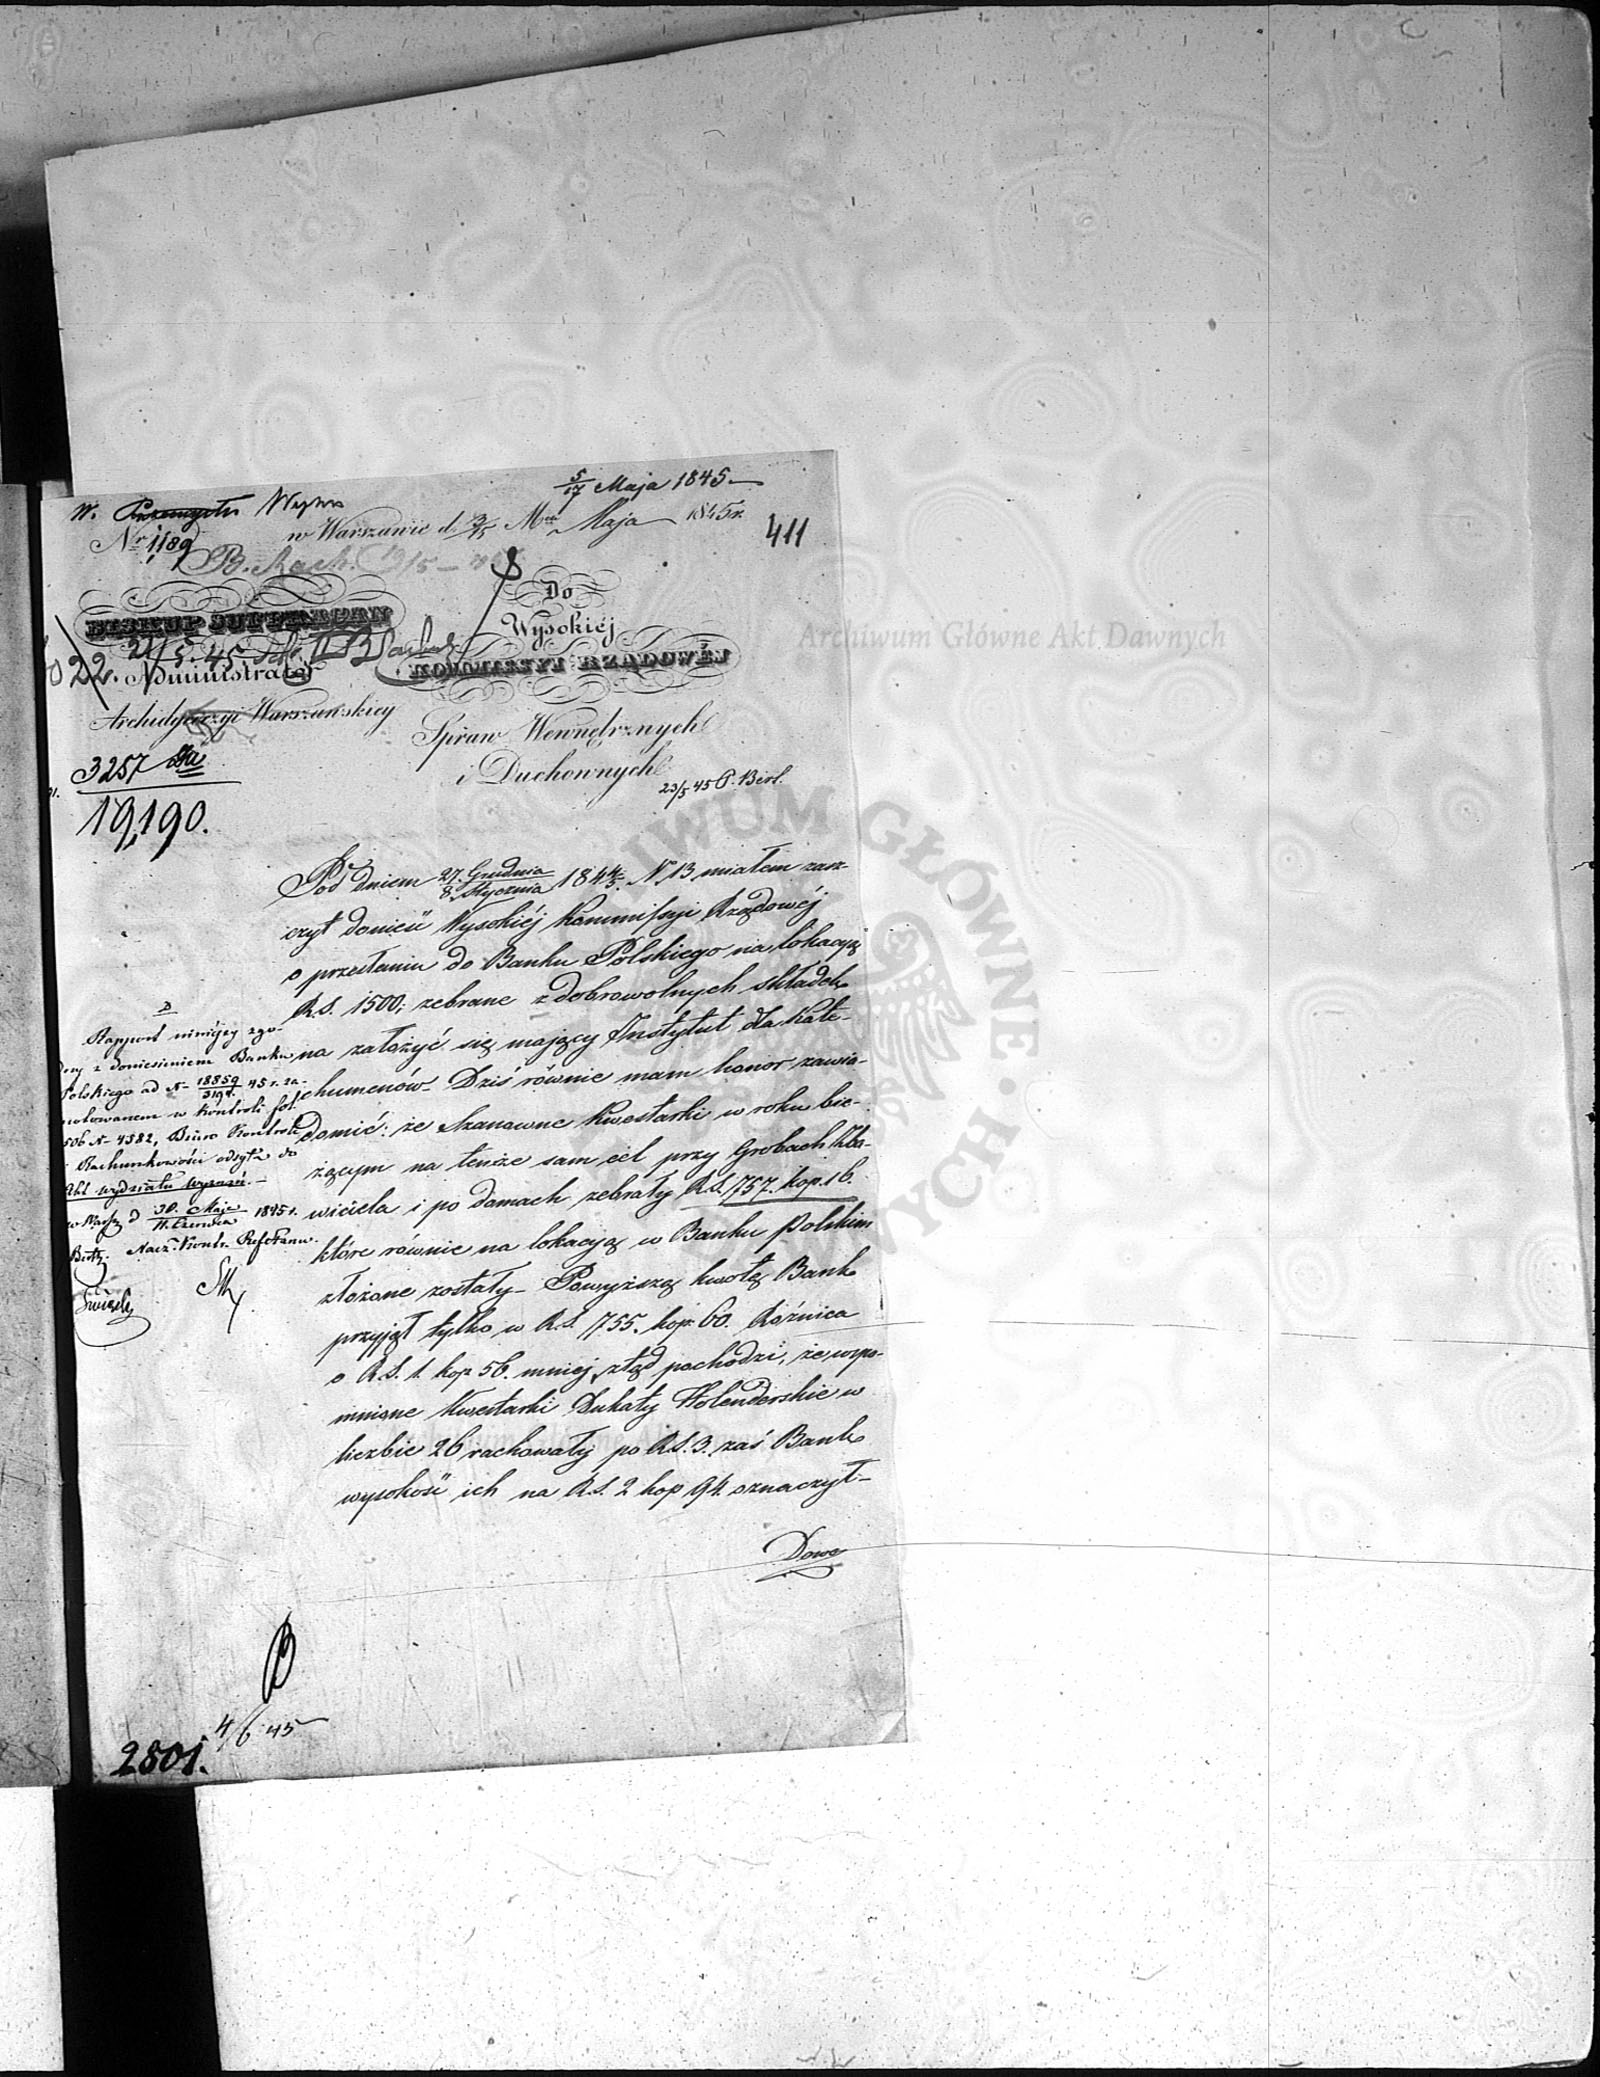 5/17 Maja 1845
W. Przemysłu Wyzna
w Warszawie d. 3/15 Mca Maja 1845 r.
Nr 1189
411
B. Rach. 19/5
BISKUP SUFFRAGAN
Administrator
Archidyecezyi Warszawskiey
Do
Wysokiéj
KOMMISSYI RZĄDOWÉJ
Spraw Wewnętrznych
i Duchownych
22.
21/5 45
3257
19,190.
23/5 45 P. Berl.
Pod dniem 27. Grudnia / 8 Stycznia 184 4/5. N. 13 miałem zasz-
czyt donieść Wysokiéj Kommissyi Rządowéj
o przesłaniu do Banku Polskiego na lokacyą
R.S. 1500; zebrane z dobrowolnych składek
na założyć się mający Instytut dla Kate-
chumenów. Dziś równie mam honor zawia-
domić: że Szanowne Kwestarki w roku bie-
żącym na tenże sam cel przy Grobach Zba-
wiciela i po domach zebrały R.S. 757. kop. 16.
które równie na lokacyą w Banku Polskim
złożone zostały. Powyższą kwotę Bank
przyjął tylko w R.S. 755. kop. 60. Różnica
o R.S. 1. kop 56. mniej ztąd pochodzi, że wspo-
mnione Kwestarki Dukaty Holenderskie w
liczbie 26 rachowały po R.S. 3. zaś Bank
wysokość ich na R.S. 2 kop 94. oznaczył
Dowo
Rapport niniejszy zgo-
dny z doniesieniem Banku
Polskiego ad N. 18859/3191. 45 r. za-
notowanem w kontroli fol.
506 N. 4382, Biuro Kontroli
i Rachunkowości odsyła do
Akt wydziału wyznań.
w Warsz. d 30. Maja / 11. Czerwca 1845 r.
Nacz. Kontr.
4/6 45
2801.
Archiwum Główne Akt Dawnych
ARCHIWUM GŁÓWNE AKT DAWNYCH